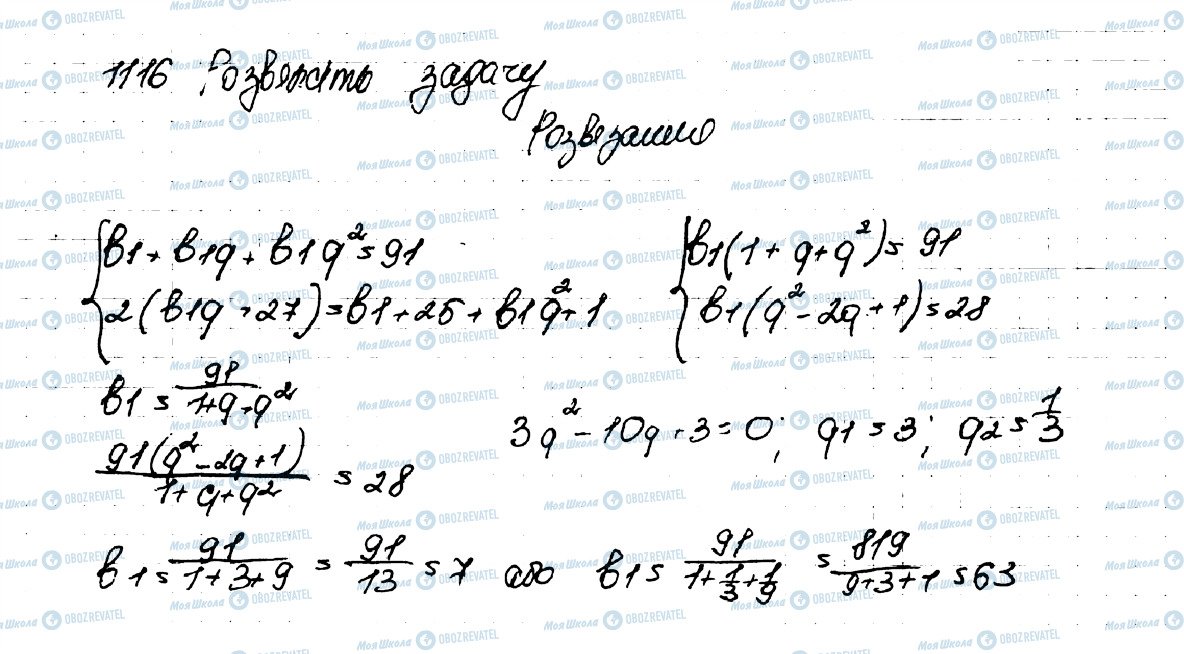 1116 Розвяжіть задачу
Розвязання
{ b1 + b1q + b1q² = 91
2(b1q + 27) = b1 + 25 + b1q² + 1
{ b1(1 + q + q²) = 91
b1(q² - 2q + 1) = 28
b1 = 91/(1+q+q²)
91(q² - 2q + 1)/(1 + q + q²) = 28
3q² - 10q + 3 = 0; q1 = 3; q2 = 1/3
b1 = 91/(1+3+9) = 91/13 = 7 або b1 = 91/(1+1/3+1/9) = 819/(9+3+1) = 63
Моя Школа OBOZREVATEL